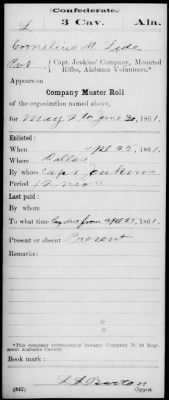 Confederate.
L 3 Cav. Ala.
Cornelius M. Lide
Pvt { Capt. Jenkins' Company, Mounted
Rifles, Alabama Volunteers.*
Appears on
Company Muster Roll
of the organization named above,
for May 2 to June 30, 1861.
Enlisted:
When Apl 22, 1861.
Where Dallas
By whom Capt Jenkins
Period 12 mos
Last paid:
By whom
To what time pay due from Apl 22, 1861.
Present or absent Present
Remarks:
*This company subsequently became Company
Alabama Cavalry.
Book mark:
(642) Copyist.